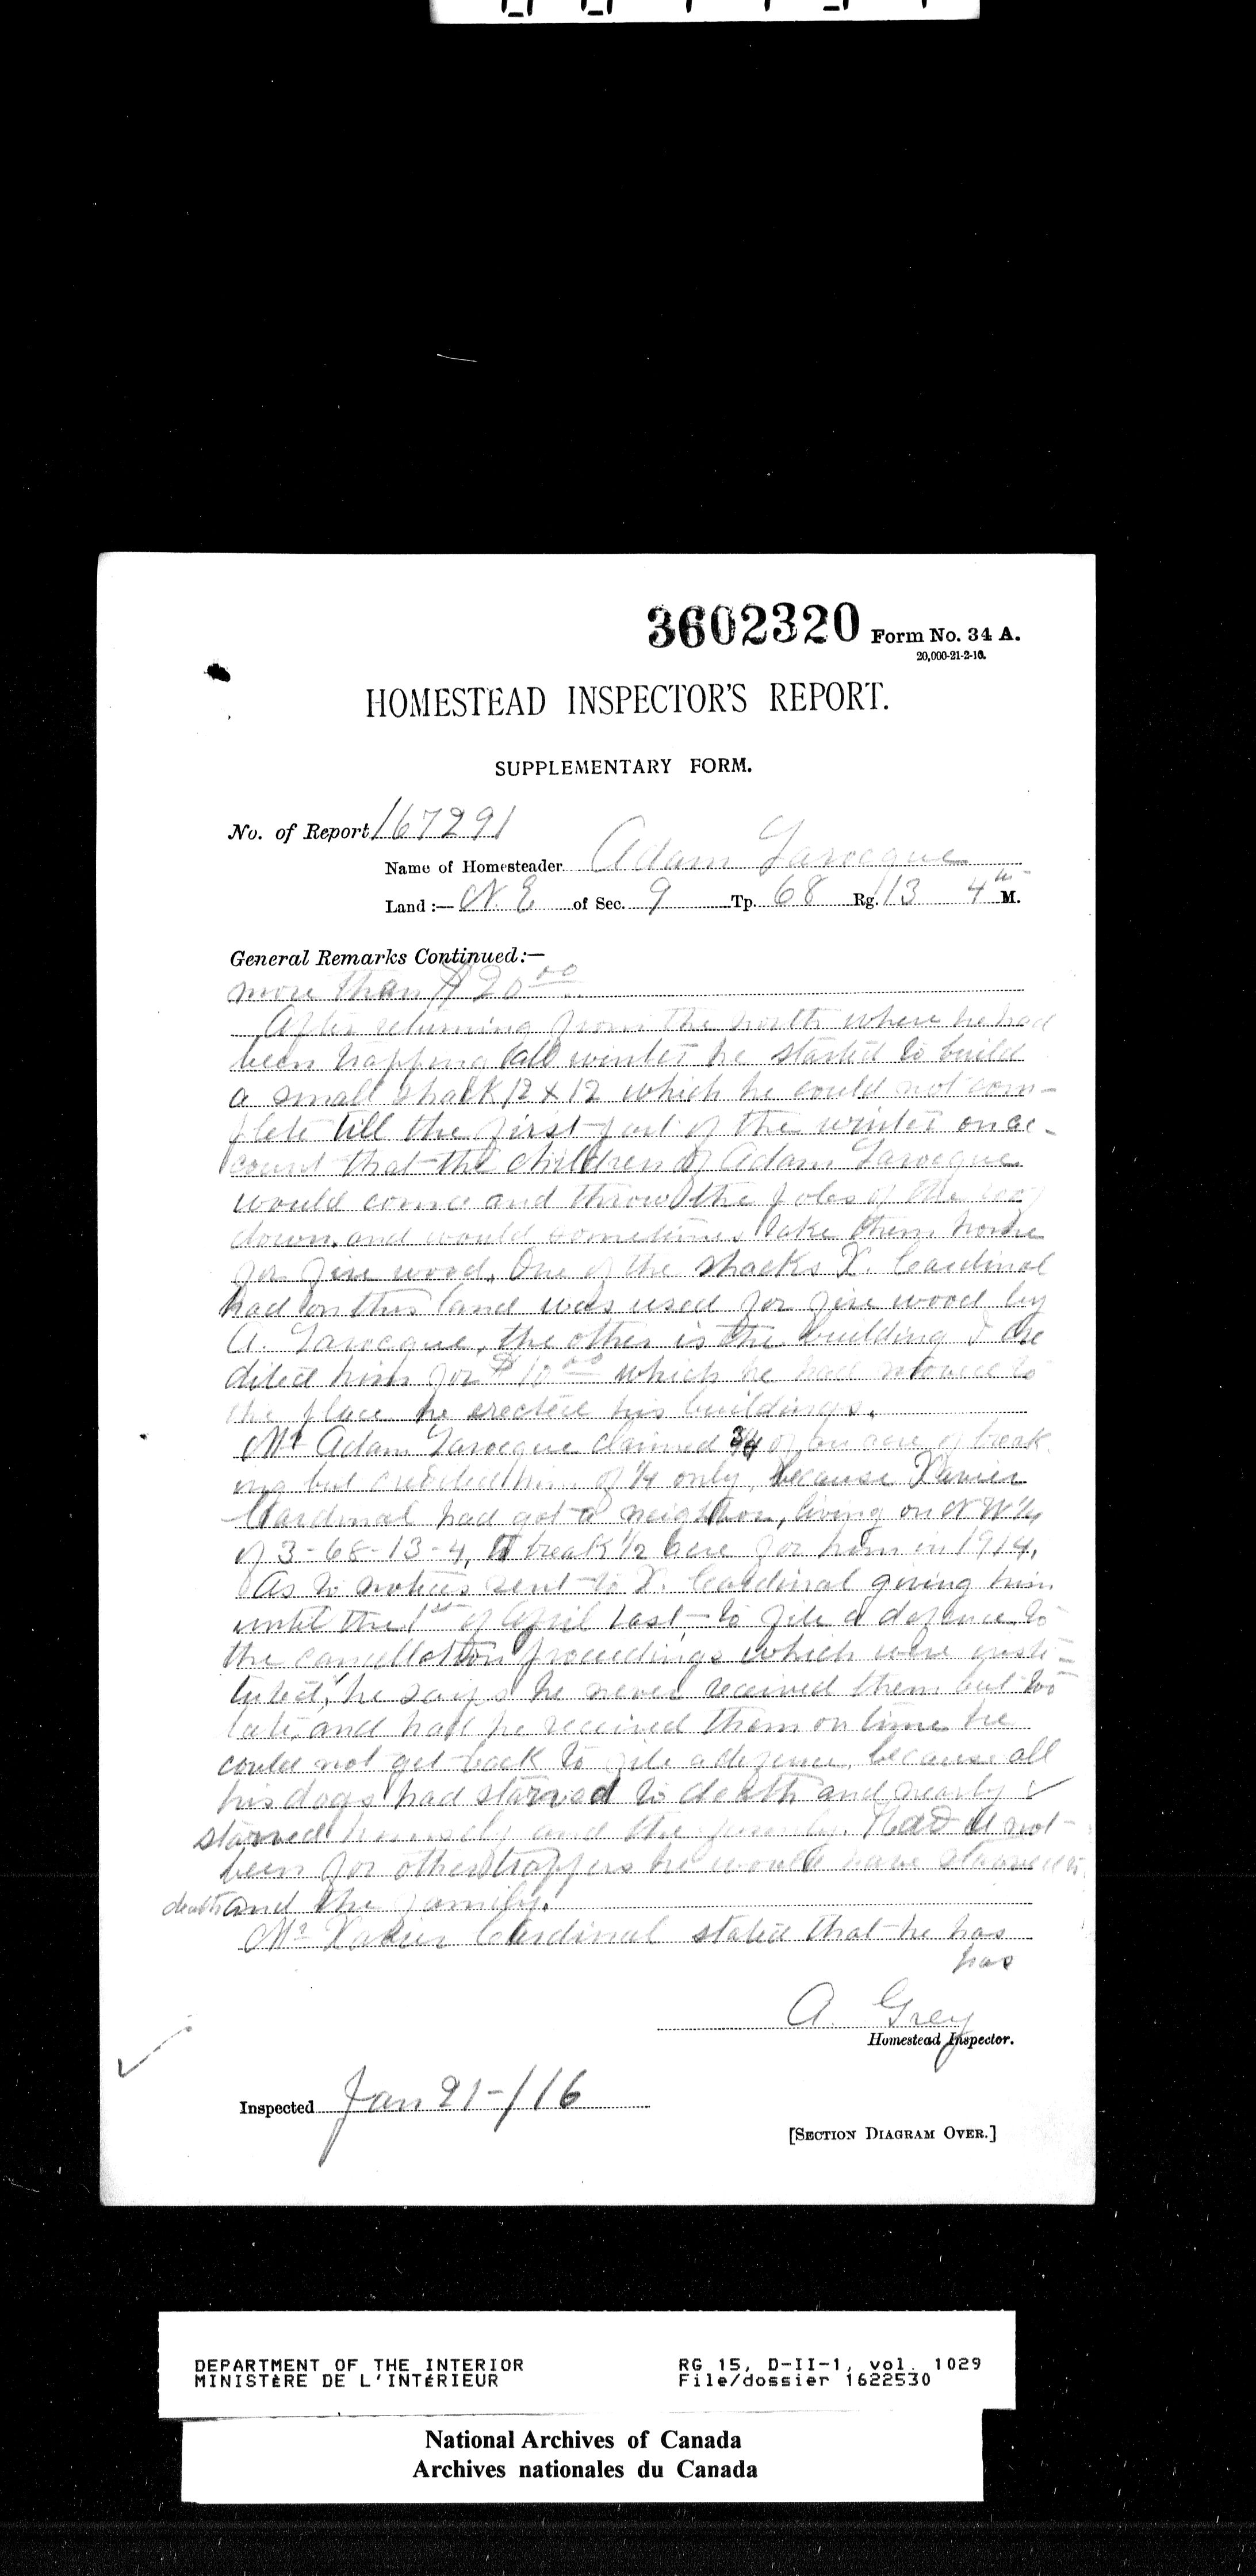 3602320 Form No. 34 A.
20,000-21-2-10.
HOMESTEAD INSPECTOR'S REPORT.
SUPPLEMENTARY FORM.
No. of Report 167291
Name of Homesteader Adam Larocque
Land :— N. E of Sec. 9 Tp. 68 Rg. 13 4th M.
General Remarks Continued:—
more than $20.00
After returning from the north where he had
been trapping all winter he started to build
a small shack 12 x 12 which he could not com-
plete till the first part of the winter on ac-
count that the children of Adam Larocque
would come and throw the poles of the roof
down and would sometimes take them home
for fire wood. One of the shacks X. Cardinal
had on this land was used for fire wood by
A. Larocque, the other is the building I cre
dited him for $10.00 which he had moved to
the place he erected his buildings.
Mr Adam Larocque claimed 3/4 of an acre of break
ing but credited him of 1/4 only, because Xavier
Cardinal had got a neighbor, living on N W 1/4
of 3-68-13-4, to break 1/2 acre for him in 1914.
As to notices sent to X. Cardinal giving him
until the 1st of April last, to file a defence to
the cancellation proceedings which were insti-
tuted, he says he never received them but too
late, and had he received them on time he
could not get back to file a defence, because all
his dogs had starved to death and nearly
starved himself and the family. Had it not
been for other trappers he would have starved to
death and the family.
Mr Xavier Cardinal stated that he has
has
A. Grey
Homestead Inspector.
Inspected Jan 21-/16
[SECTION DIAGRAM OVER.]
DEPARTMENT OF THE INTERIOR RG 15, D-II-1, vol. 1029
MINISTÈRE DE L'INTÉRIEUR File/dossier 1622530
National Archives of Canada
Archives nationales du Canada